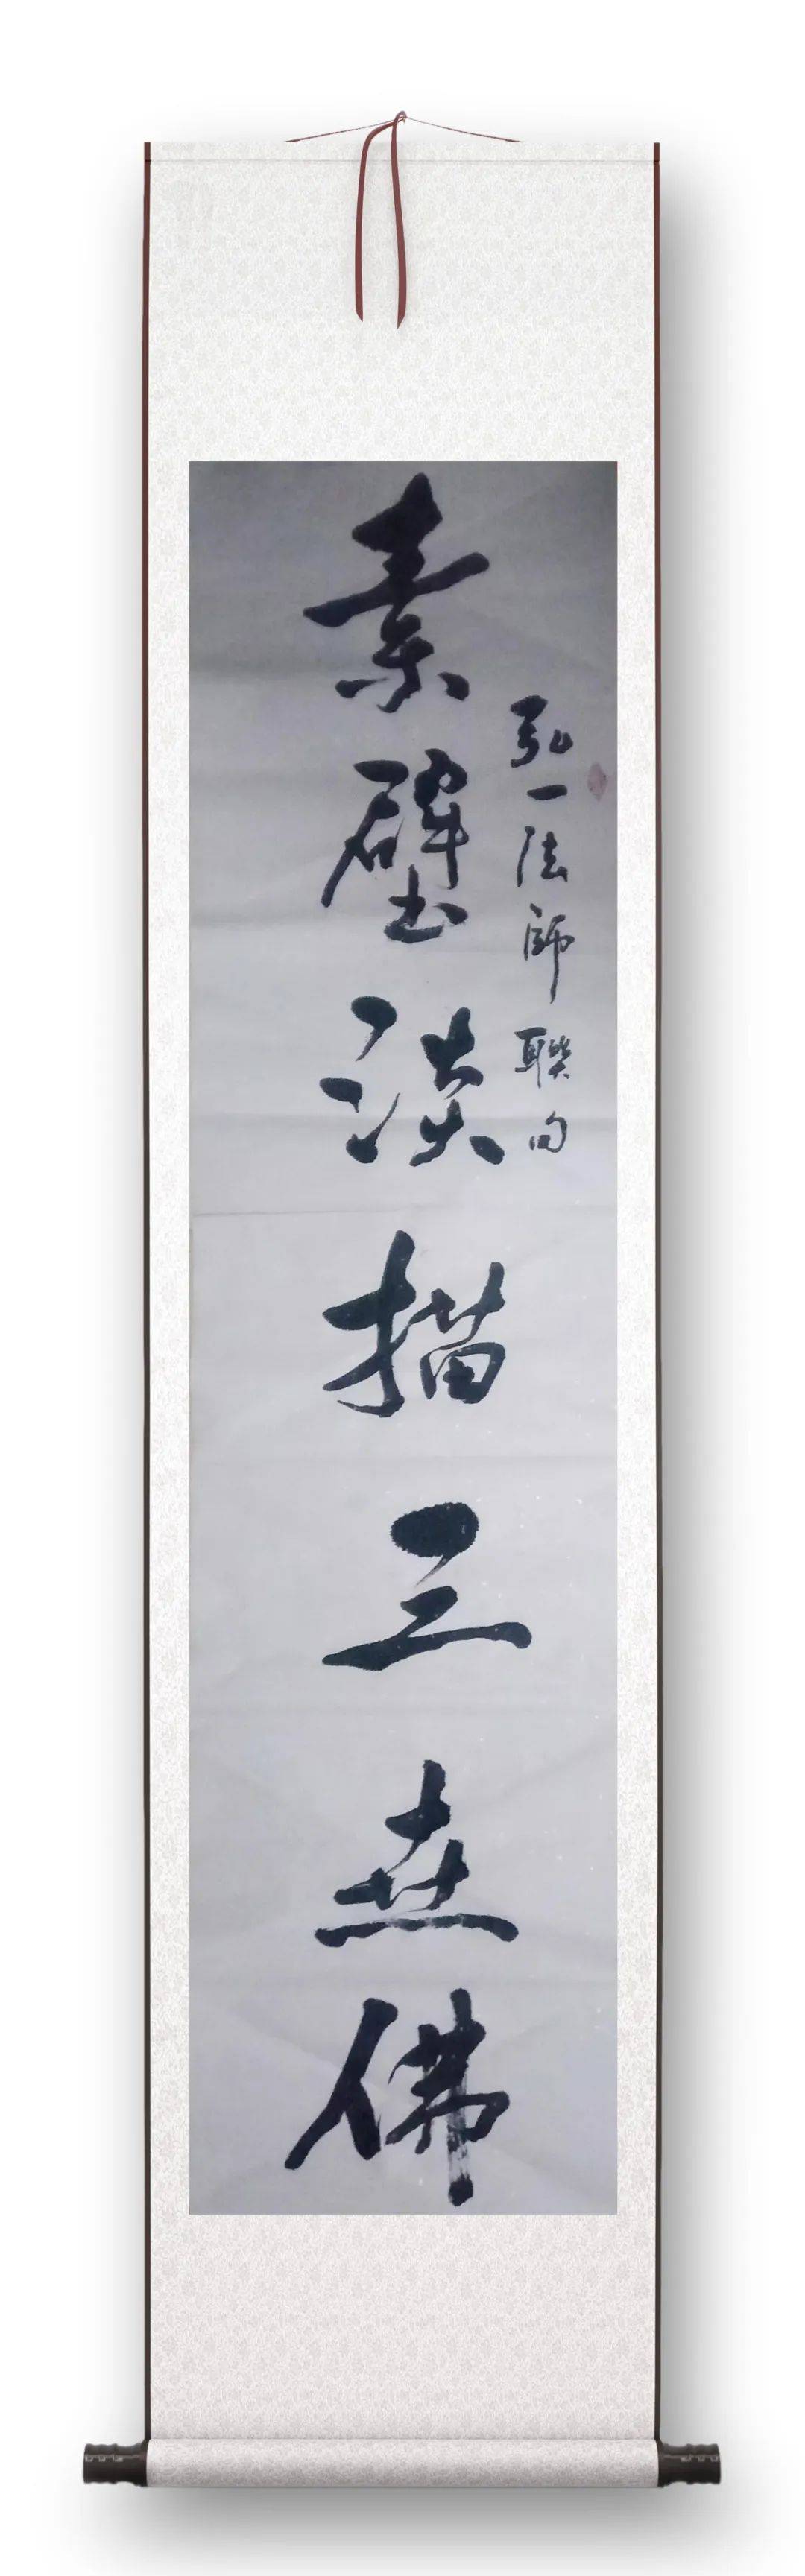 弘一法師聯句
素壁淡描三世佛